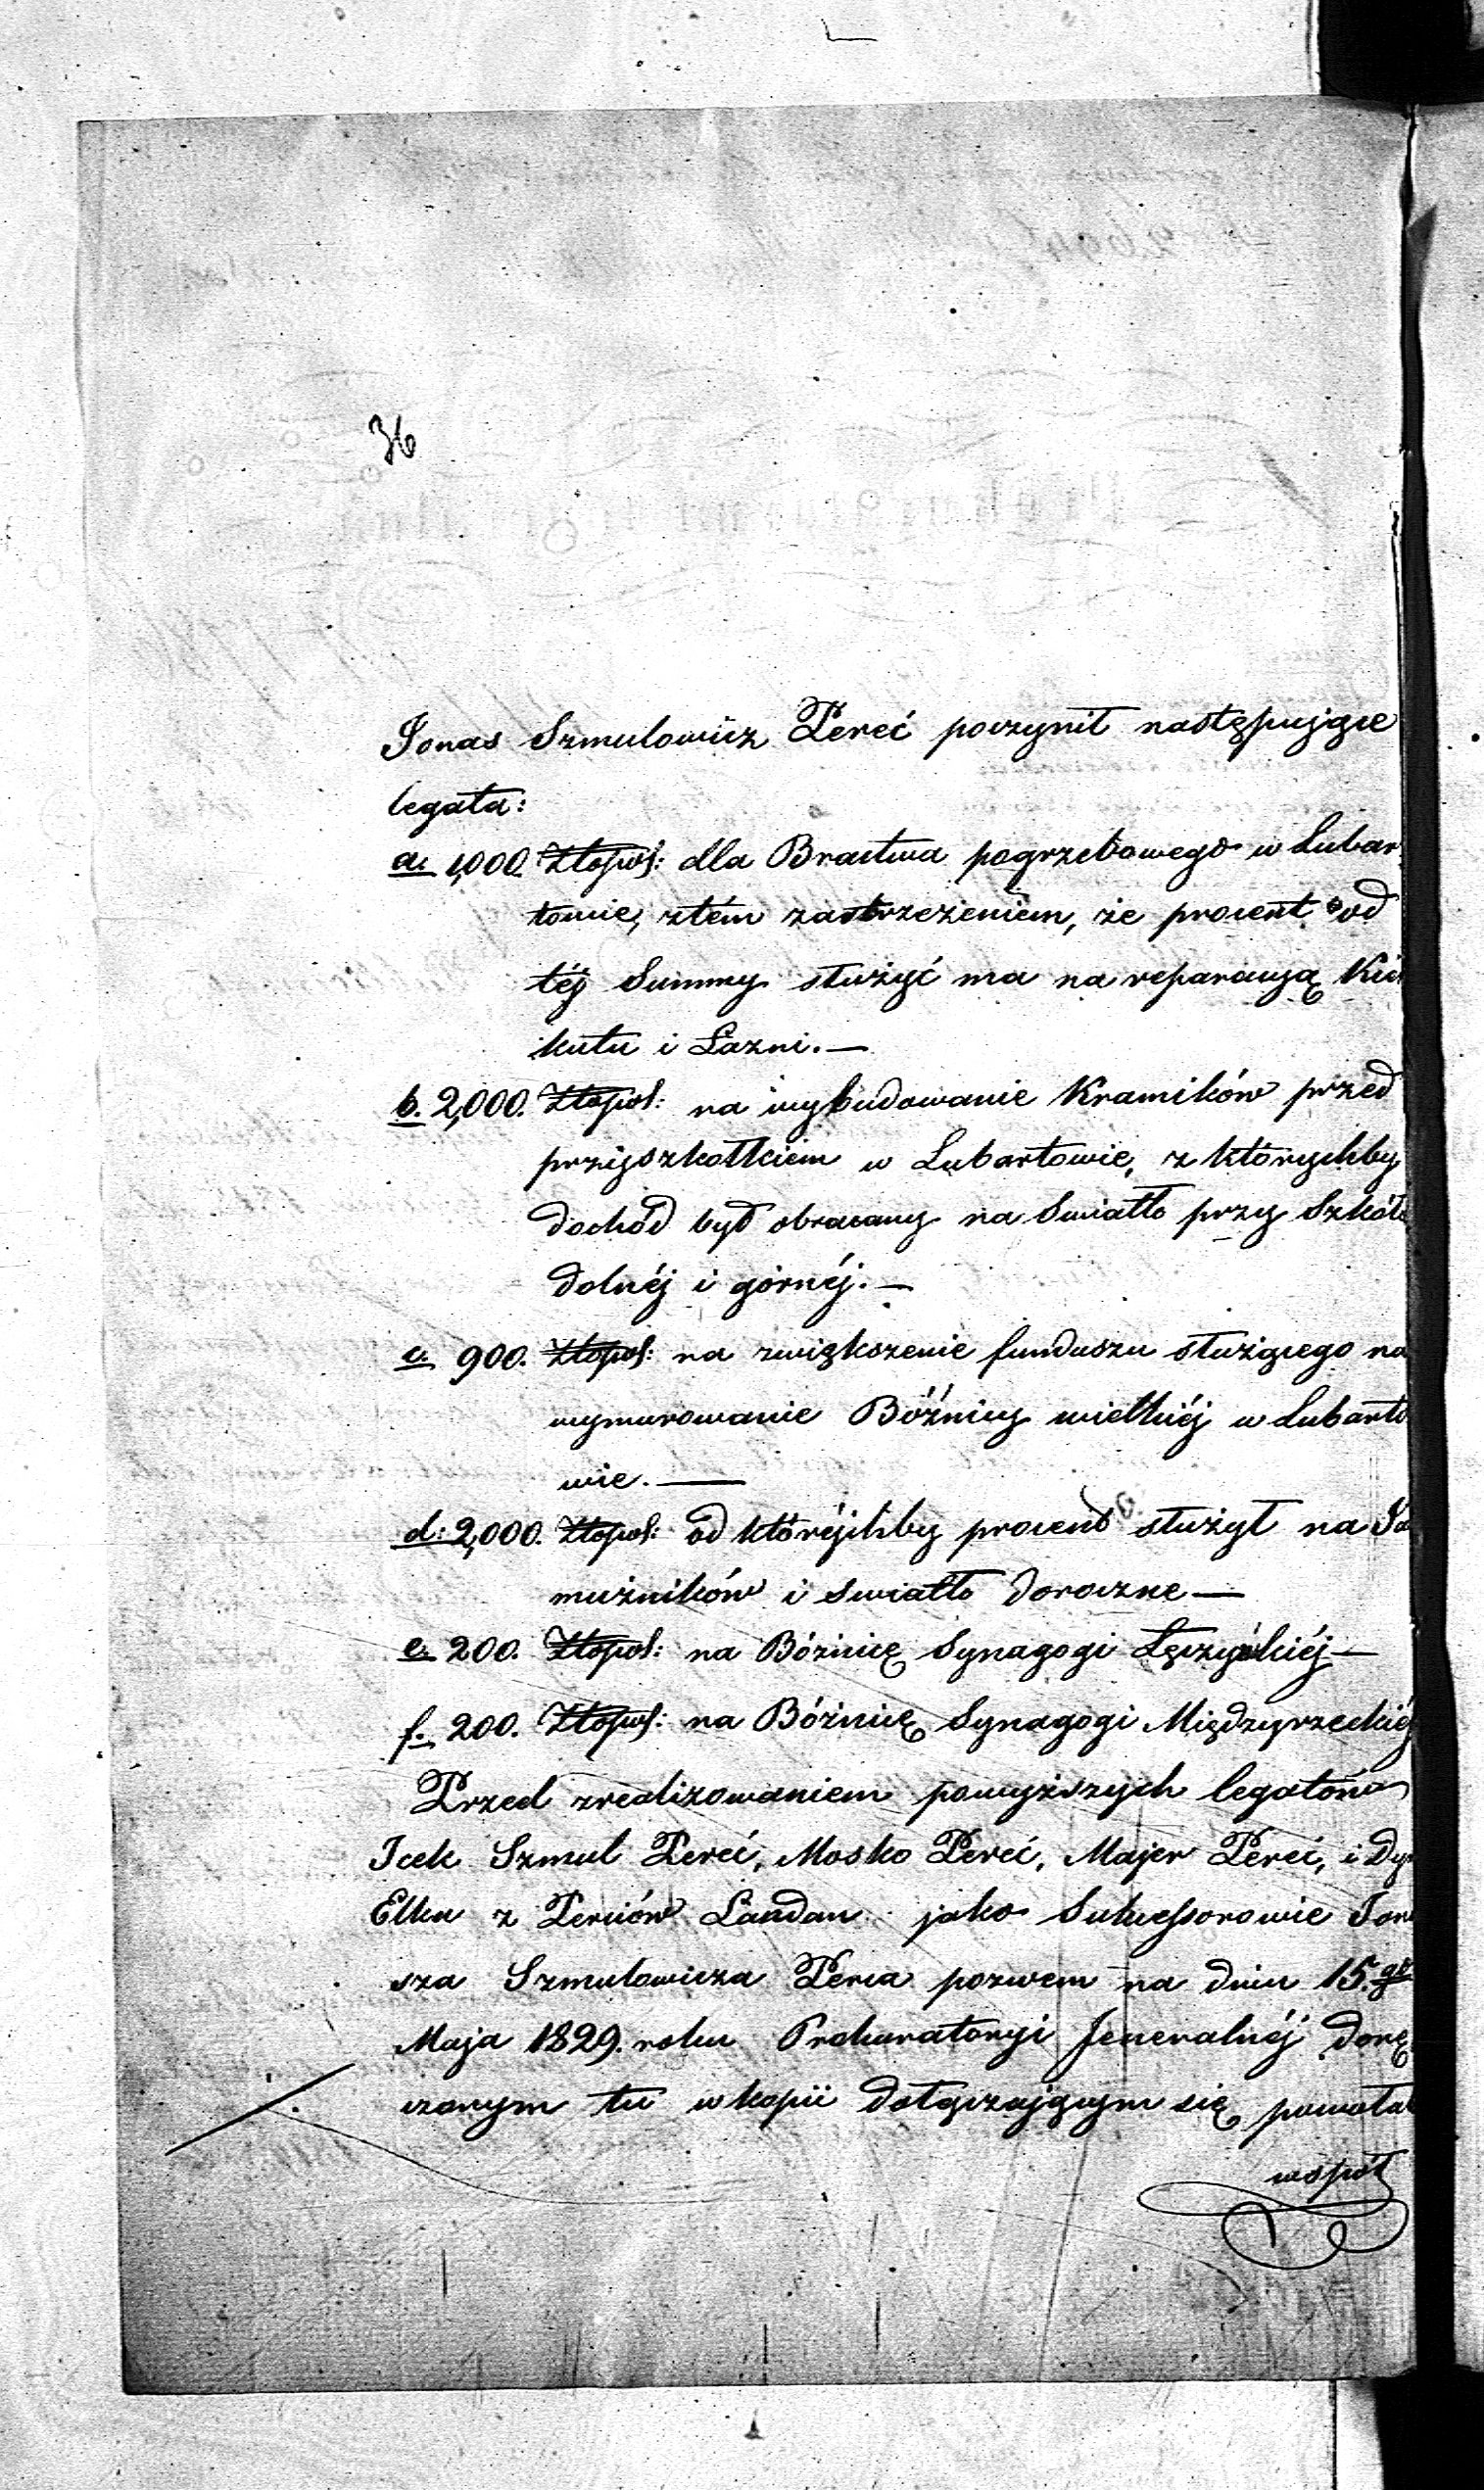 36
Jonas Szmulowicz Pereć poczynił następujące
legata:
a. 1,000. Złopol: dla Bractwa pogrzebowego w Lubar
towie, z tém zastrzeżeniem, że procent od
téj Summy służyć ma na reparacyą Kir
kutu i Łazni.—
b. 2,000. Złopol: na wybudowanie Kramików przed
przyszkołkiem w Lubartowie, z którychby
dochód był obracany na Swiatło przy Szkół
dolnéj i górnéj.—
c. 900. Złopol: na zwiększenie funduszu służącego na
wymurowanie Bóźnicy wielkiéj w Lubarto
wie.—
d: 2,000. Złopol: od którychby procent służył na Ja
mużników i swiatło doroczne—
e. 200. Złopol: na Bóżnicę Synagogi Łęczyckiéj—
f. 200. Złopol: na Bóżnicę Synagogi Międzyrzeckiéj
Przed zrealizowaniem powyższych legatów
Icek Szmul Pereć, Mosko Pereć, Majer Pereć, i Dy
Elka z Perców Landau jako Sukcessorowie Jon
sza Szmulowicza Perca pozwem na dniu 15.go
Maja 1829. roku Prokuratoryi Jeneralnéj dorę
czonym tu w kopii dołączającym się powołal
współ